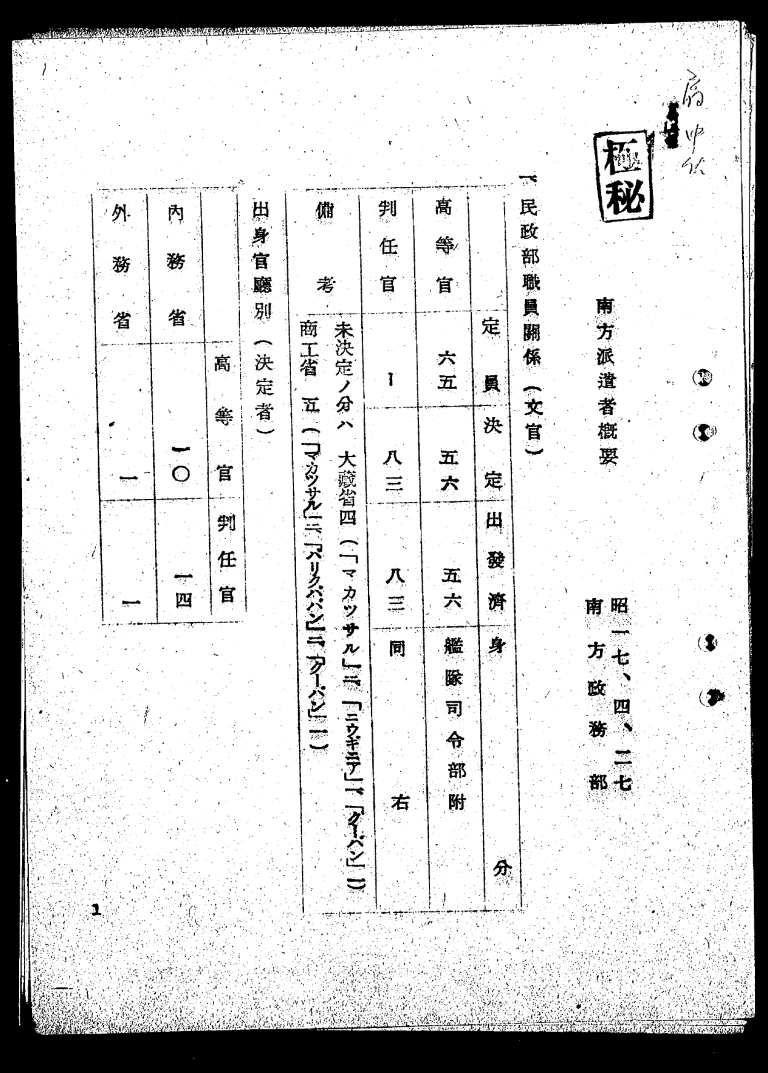 極秘
南方派遣者概要
昭一七、四、二七
南方政務部
一、民政部職員關係（文官）
定員 決定 出發濟 身分
高等官 六五 五六 五六 艦隊司令部附
判任官 ー 八三 八三 同右
備考 未決定ノ分ハ 大藏省四（「マカツサル」二、「ニウギニア」一、「クーパン」一）
商工省 五（「マカツサル」二、「バリクパパン」二、「クーパン」一）
出身官廳別（決定者）
高等官 判任官
內務省 一〇 一四
外務省 一 一
1